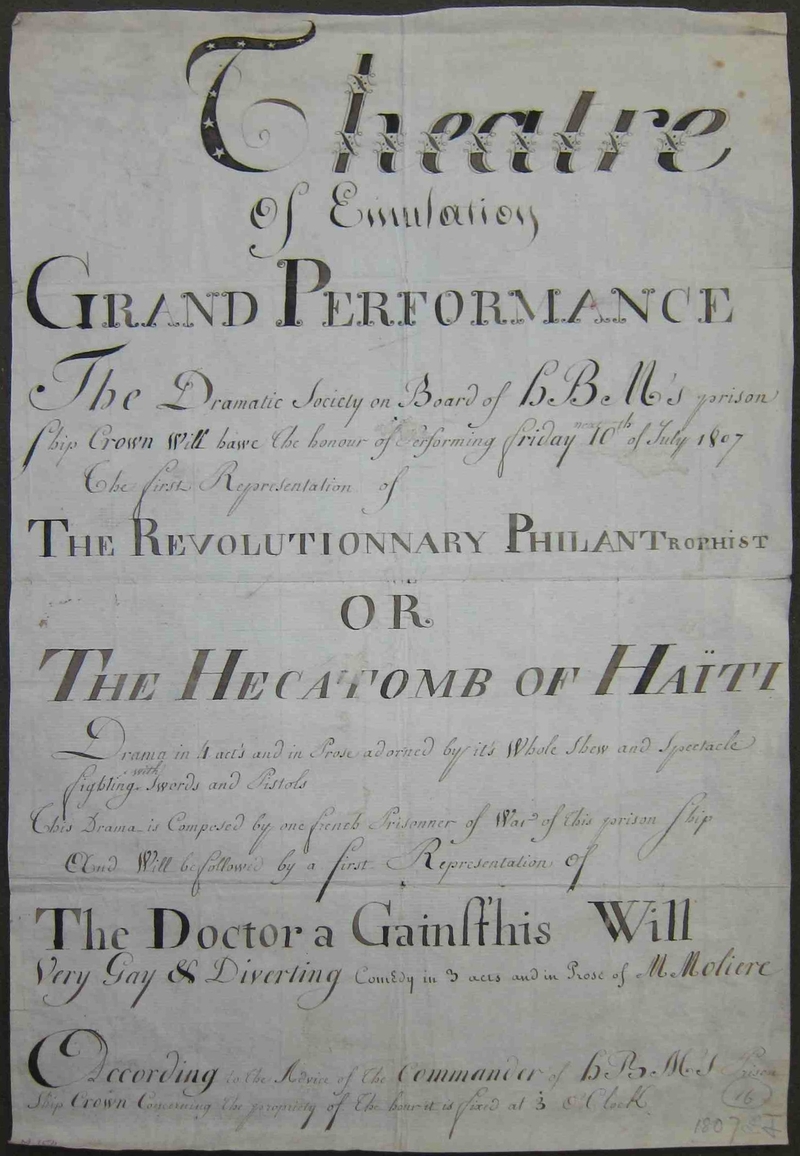 Theatre
of Emulation
GRAND PERFORMANCE
The Dramatic Society on Board of hBM's prison
Ship Crown Will hawe the honour of Performing friday next 10th of July 1807
The first Representation of
THE REVOLUTIONNARY PHILANTROPHIST
OR
THE HECATOMB OF HAÏTI
Drama in 4 act's and in Prose adorned by it's Whole Shew and Spectacle
fighting with Swords and Pistols
This Drama is Composed by one french Prisonner of War of this prison Ship
And Will be followed by a first Representation of
The Doctor a Gainst'his Will
Very Gay & Diverting Comedy in 3 acts and in Prose of M. Moliere
According to the Advice of the Commander of hBM's Prison
Ship Crown Concerning the propriety of the hour it is fixed at 3 O'Clock
16
1807